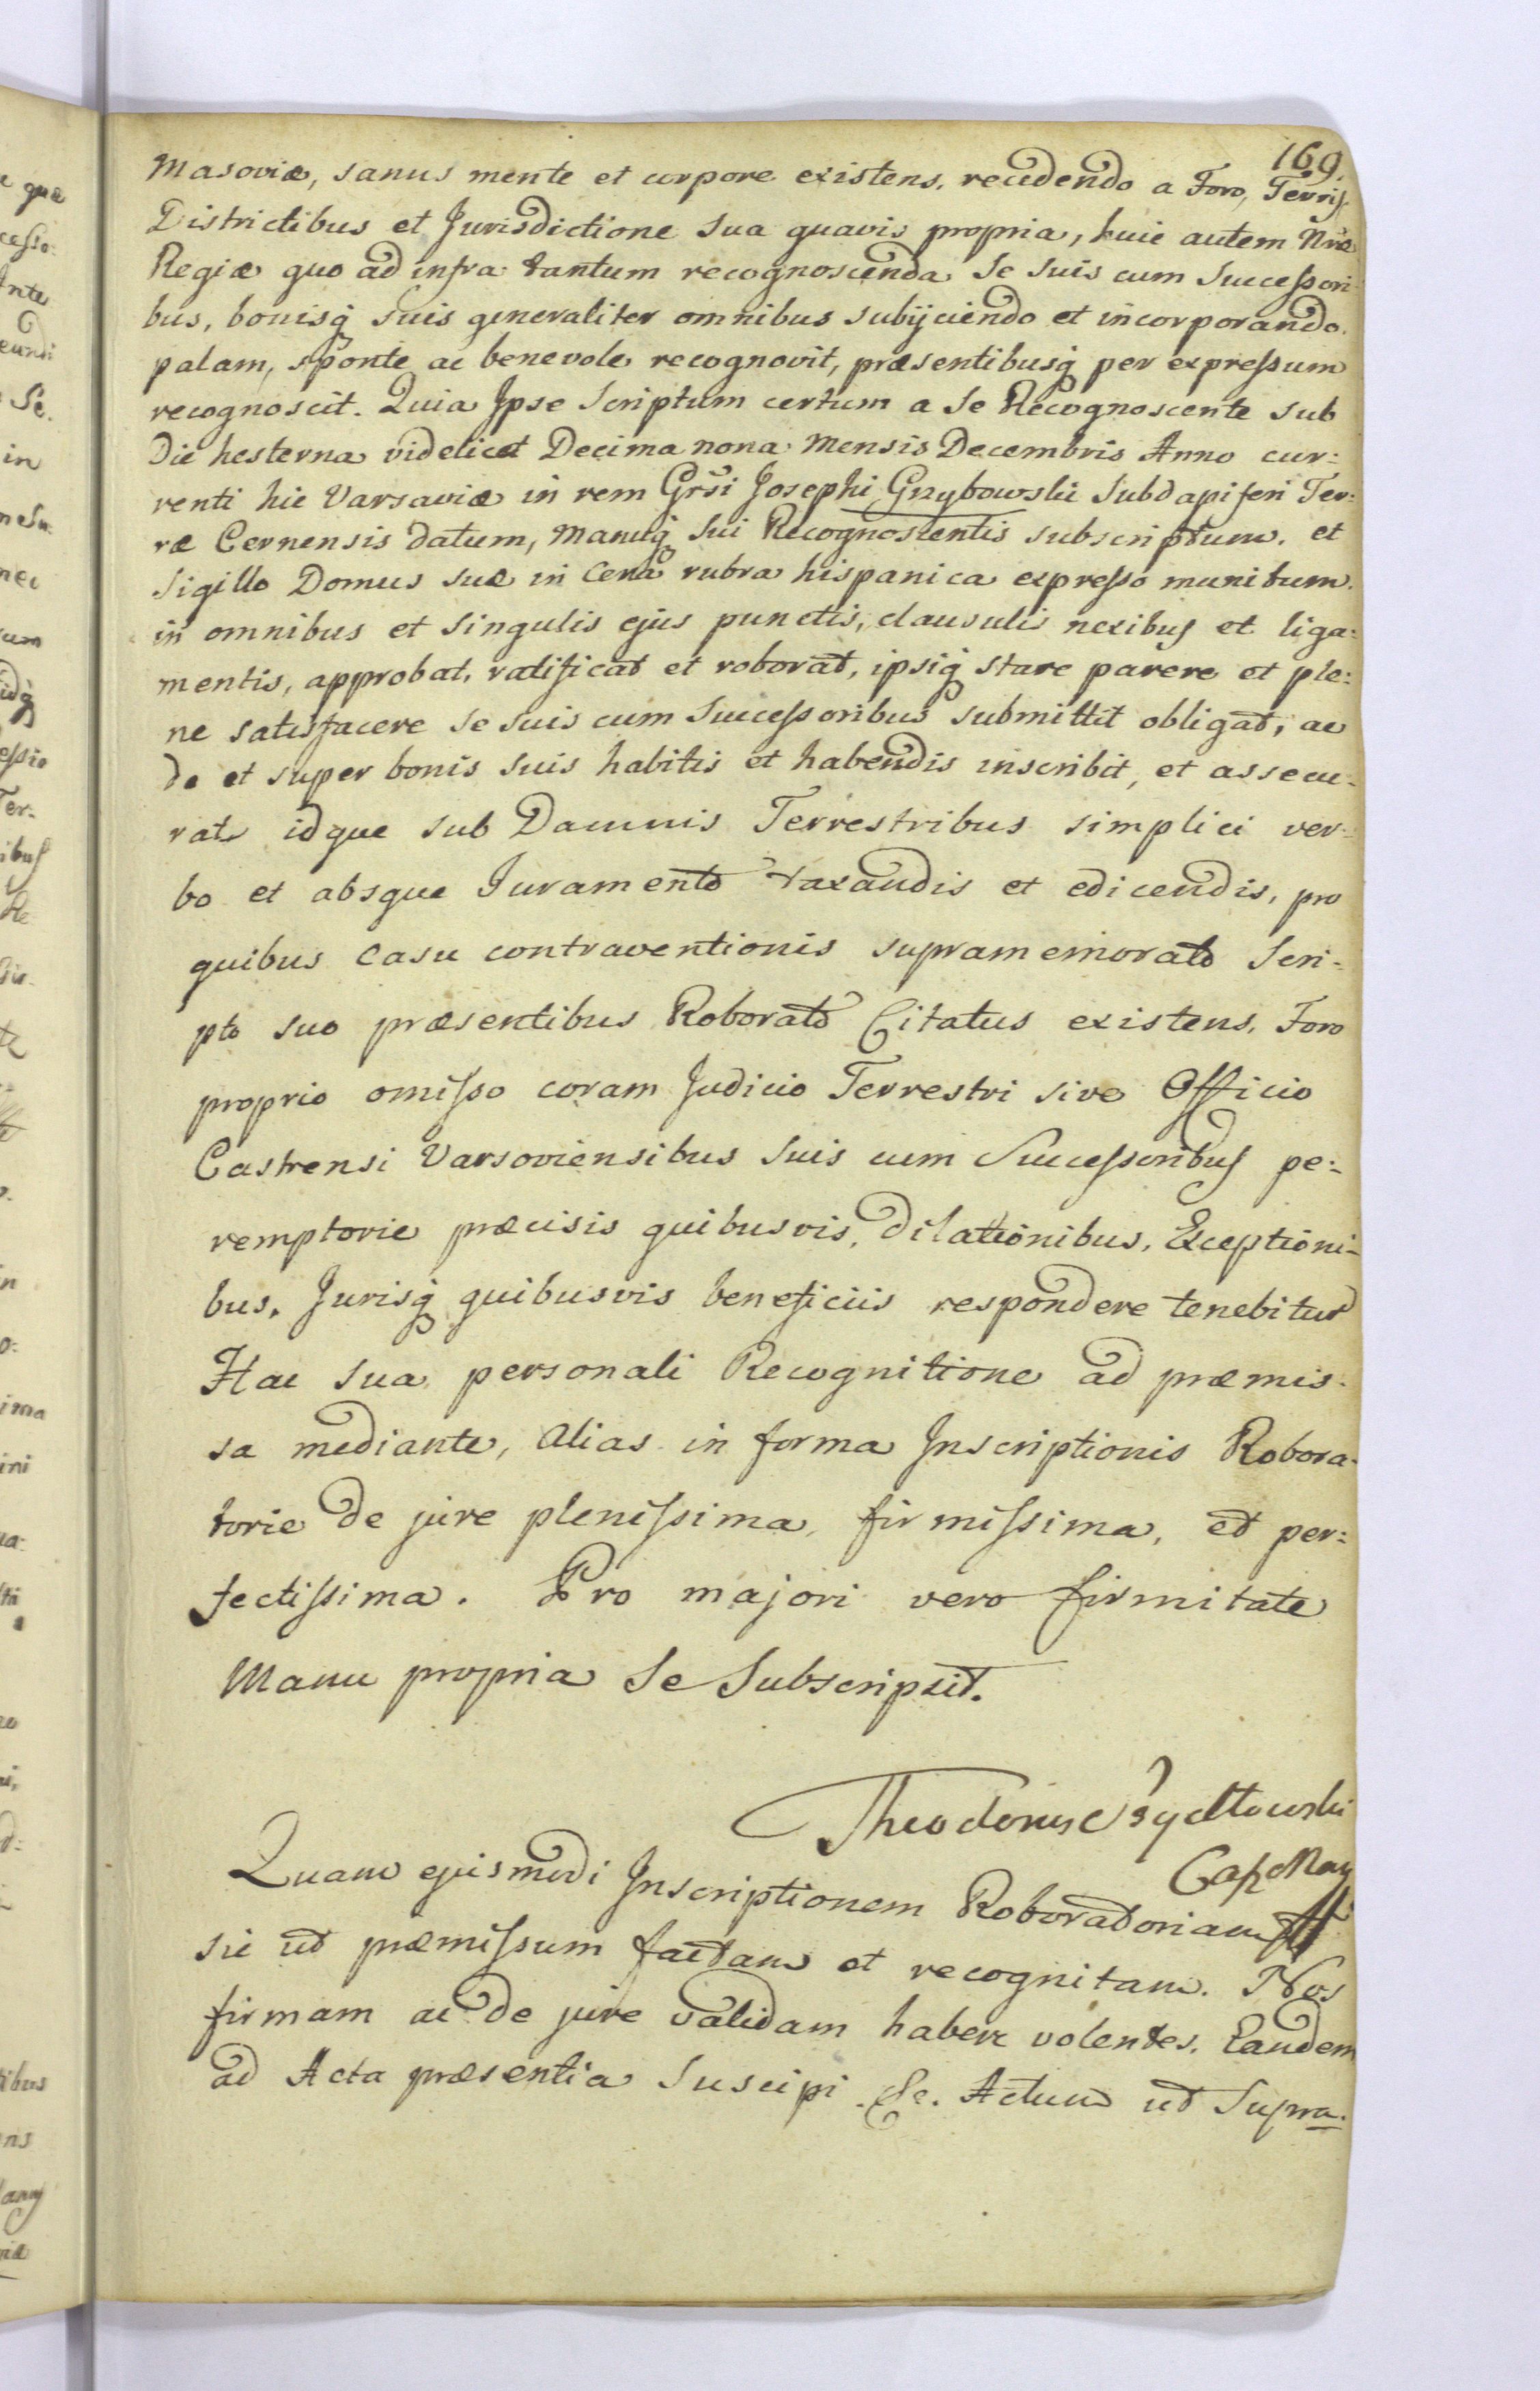 169.
Masoviæ, sanus mente et corpore existens, recedendo a Foro, Terris
Districtibus et Jurisdictione sua quavis propria, huic autem Nræ
Regiæ quo ad infra tantum recognoscenda se suis cum Successori-
bus, bonisq suis generaliter omnibus subijciendo et incorporando.
palam, sponte ac benevole recognovit, præsentibusq per expressum
recognoscit. Quia Ipse Scriptum certum a se Recognoscente sub
die hesterna videlicet Decima nona Mensis Decembris Anno cur:
renti hic Varsaviæ in rem Grsi Josephi Grzybowski Subdapiferi Ter:
ræ Cernensis datum, Manuq sui Recognoscentis subscriptum. et
Sigillo Domus suæ in Cera rubra hispanica expresso munitum.
in omnibus et singulis ejus punctis, clausulis nexibus et liga:
mentis, approbat, ratificat et roborat, ipsiq stare parere et ple:
ne satisfacere se suis cum Successoribus submittit obligat, ac
de et super bonis suis habitis et habendis inscribit, et assecu-
rat idque sub Damnis Terrestribus simplici ver-
bo et absque Juramento taxandis et edicendis, pro
quibus casu contraventionis supramemorato Scri-
pto suo præsentibus Roborato Citatus existens, Foro
proprio omisso coram Judicio Terrestri sive Officio
Castrensi Varsoviensibus suis cum Successoribus pe:
remptorie præcisis quibusvis, dilationibus, Exceptioni-
bus, Jurisq quibusvis beneficiis respondere tenebitur
Hac sua personali Recognitione ad præmis-
sa mediante, alias in forma Inscriptionis Robora-
torie de jure plenissima, firmissima, et per:
fectissima. Pro majori vero firmitate
Manu propria se Subscripsit.
Theodorus
Quam ejusmodi Inscriptionem Roboratoriam
sic ut præmissum factam et recognitam. Nos
firmam ac de jure validam habere volentes. Eandem
ad Acta præsentia suscipi &c. Actum ut Supra.